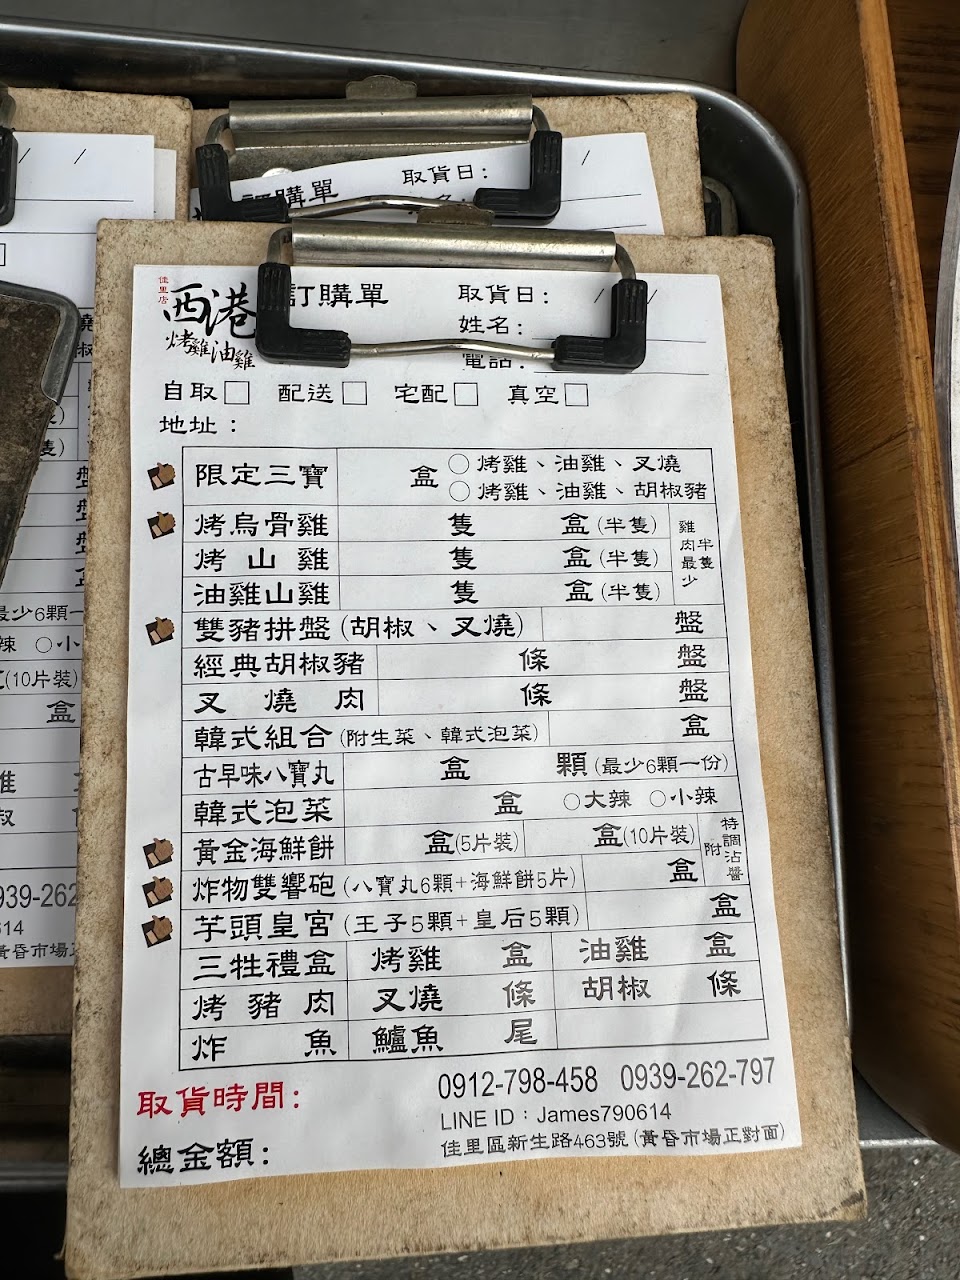 訂購單
取貨日: /
佳里店
西港
烤雞油雞
訂購單
取貨日: / /
姓名:
電話:
自取□ 配送□ 宅配□ 真空□
地址:
限定三寶 盒 ○烤雞、油雞、叉燒
○烤雞、油雞、胡椒豬
烤烏骨雞 隻 盒(半隻)
烤山雞 隻 盒(半隻)
油雞山雞 隻 盒(半隻)
雞肉最少半隻
雙豬拼盤(胡椒、叉燒) 盤
經典胡椒豬 條 盤
叉燒肉 條 盤
韓式組合(附生菜、韓式泡菜) 盒
古早味八寶丸 盒 顆(最少6顆一份)
韓式泡菜 盒 ○大辣 ○小辣
黃金海鮮餅 盒(5片裝) 盒(10片裝)
附特調沾醬
炸物雙響砲(八寶丸6顆+海鮮餅5片) 盒
芋頭皇宮(王子5顆+皇后5顆) 盒
三牲禮盒 烤雞 盒 油雞 盒
烤豬肉 叉燒 條 胡椒 條
炸魚 鱸魚 尾
取貨時間:
總金額:
0912-798-458 0939-262-797
LINE ID：James790614
佳里區新生路463號(黃昏市場正對面)
/ /
隻)
盤
盤
最少6顆一
辣 ○小
(10片裝)
盒
939-262
614
黃昏市場正